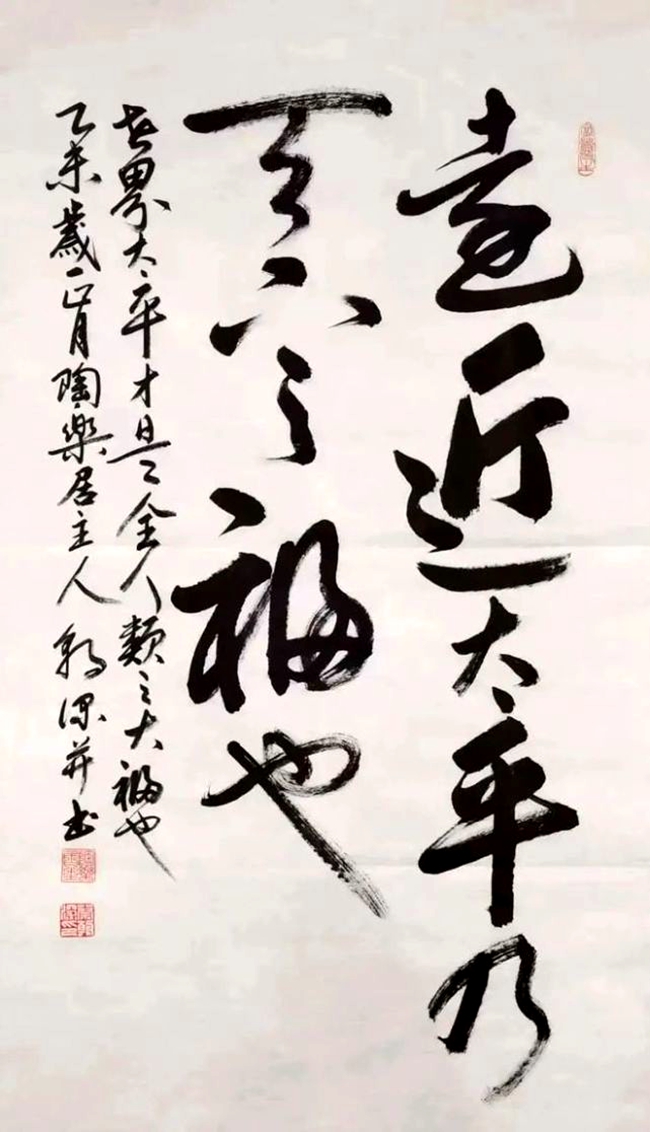 遠近太平乃
天下之福也
世界太平才是全人類之大福也
乙未歲正月陶樂居主人并书